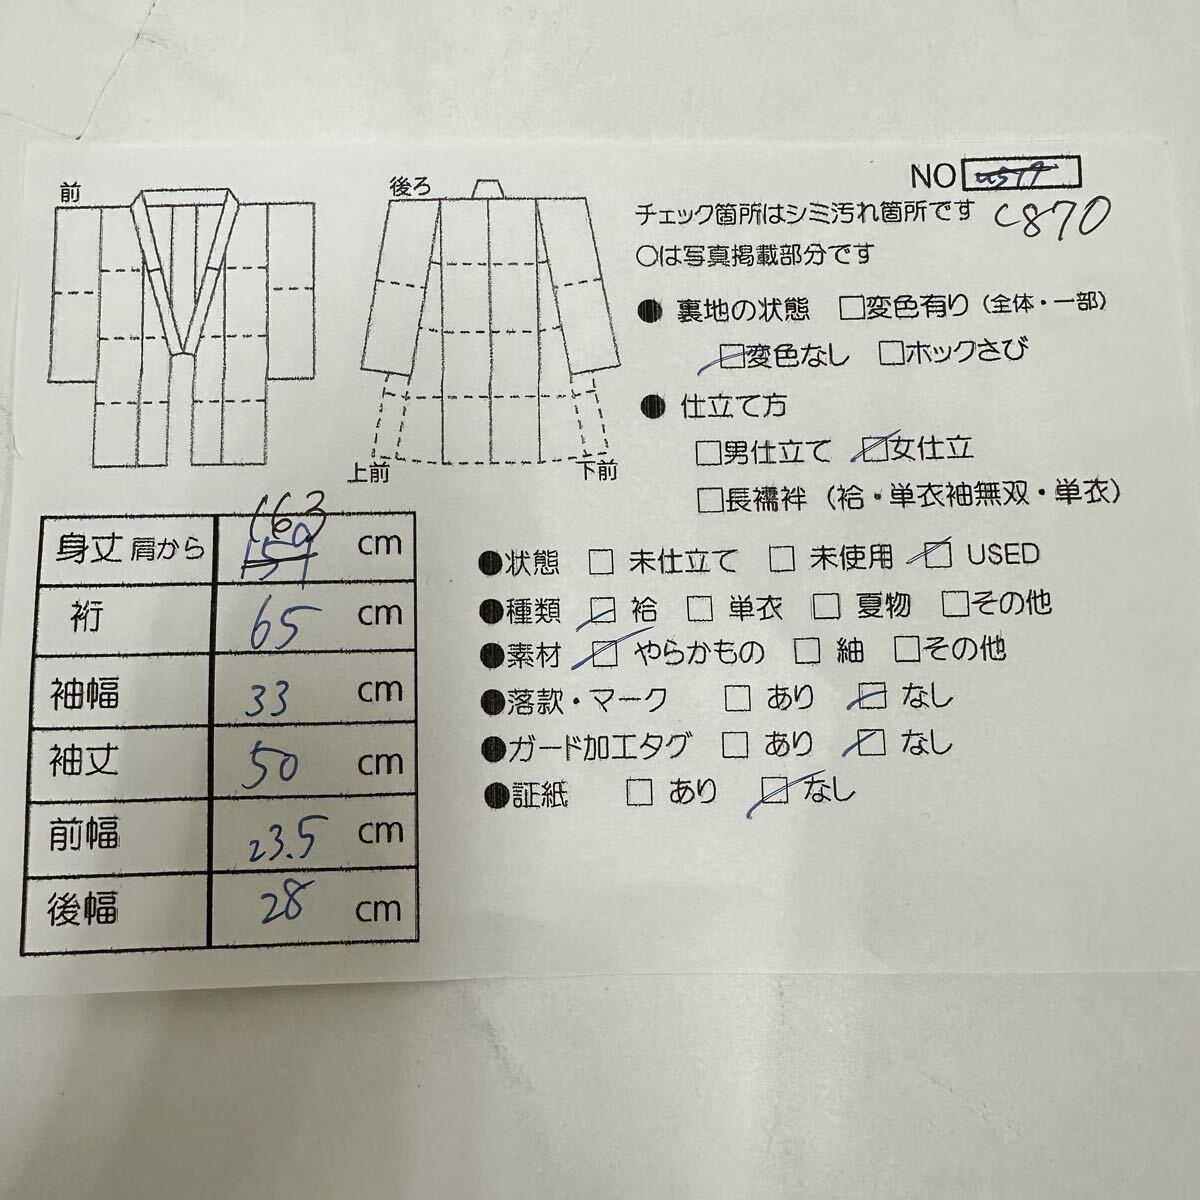 前
後ろ
上前
下前
NO
C870
チェック箇所はシミ汚れ箇所です
○は写真掲載部分です
● 裏地の状態 □変色有り（全体・一部）
□変色なし □ホックさび
● 仕立て方
□男仕立て □女仕立
□長襦袢（袷・単衣袖無双・単衣）
●状態 □ 未仕立て □ 未使用 □ USED
●種類 □ 袷 □ 単衣 □ 夏物 □その他
●素材 □ やらかもの □ 紬 □その他
●落款・マーク □ あり □ なし
●ガード加工タグ □ あり □ なし
●証紙 □ あり □ なし
163
身丈 肩から 159 cm
裄 65 cm
袖幅 33 cm
袖丈 50 cm
前幅 23.5 cm
後幅 28 cm